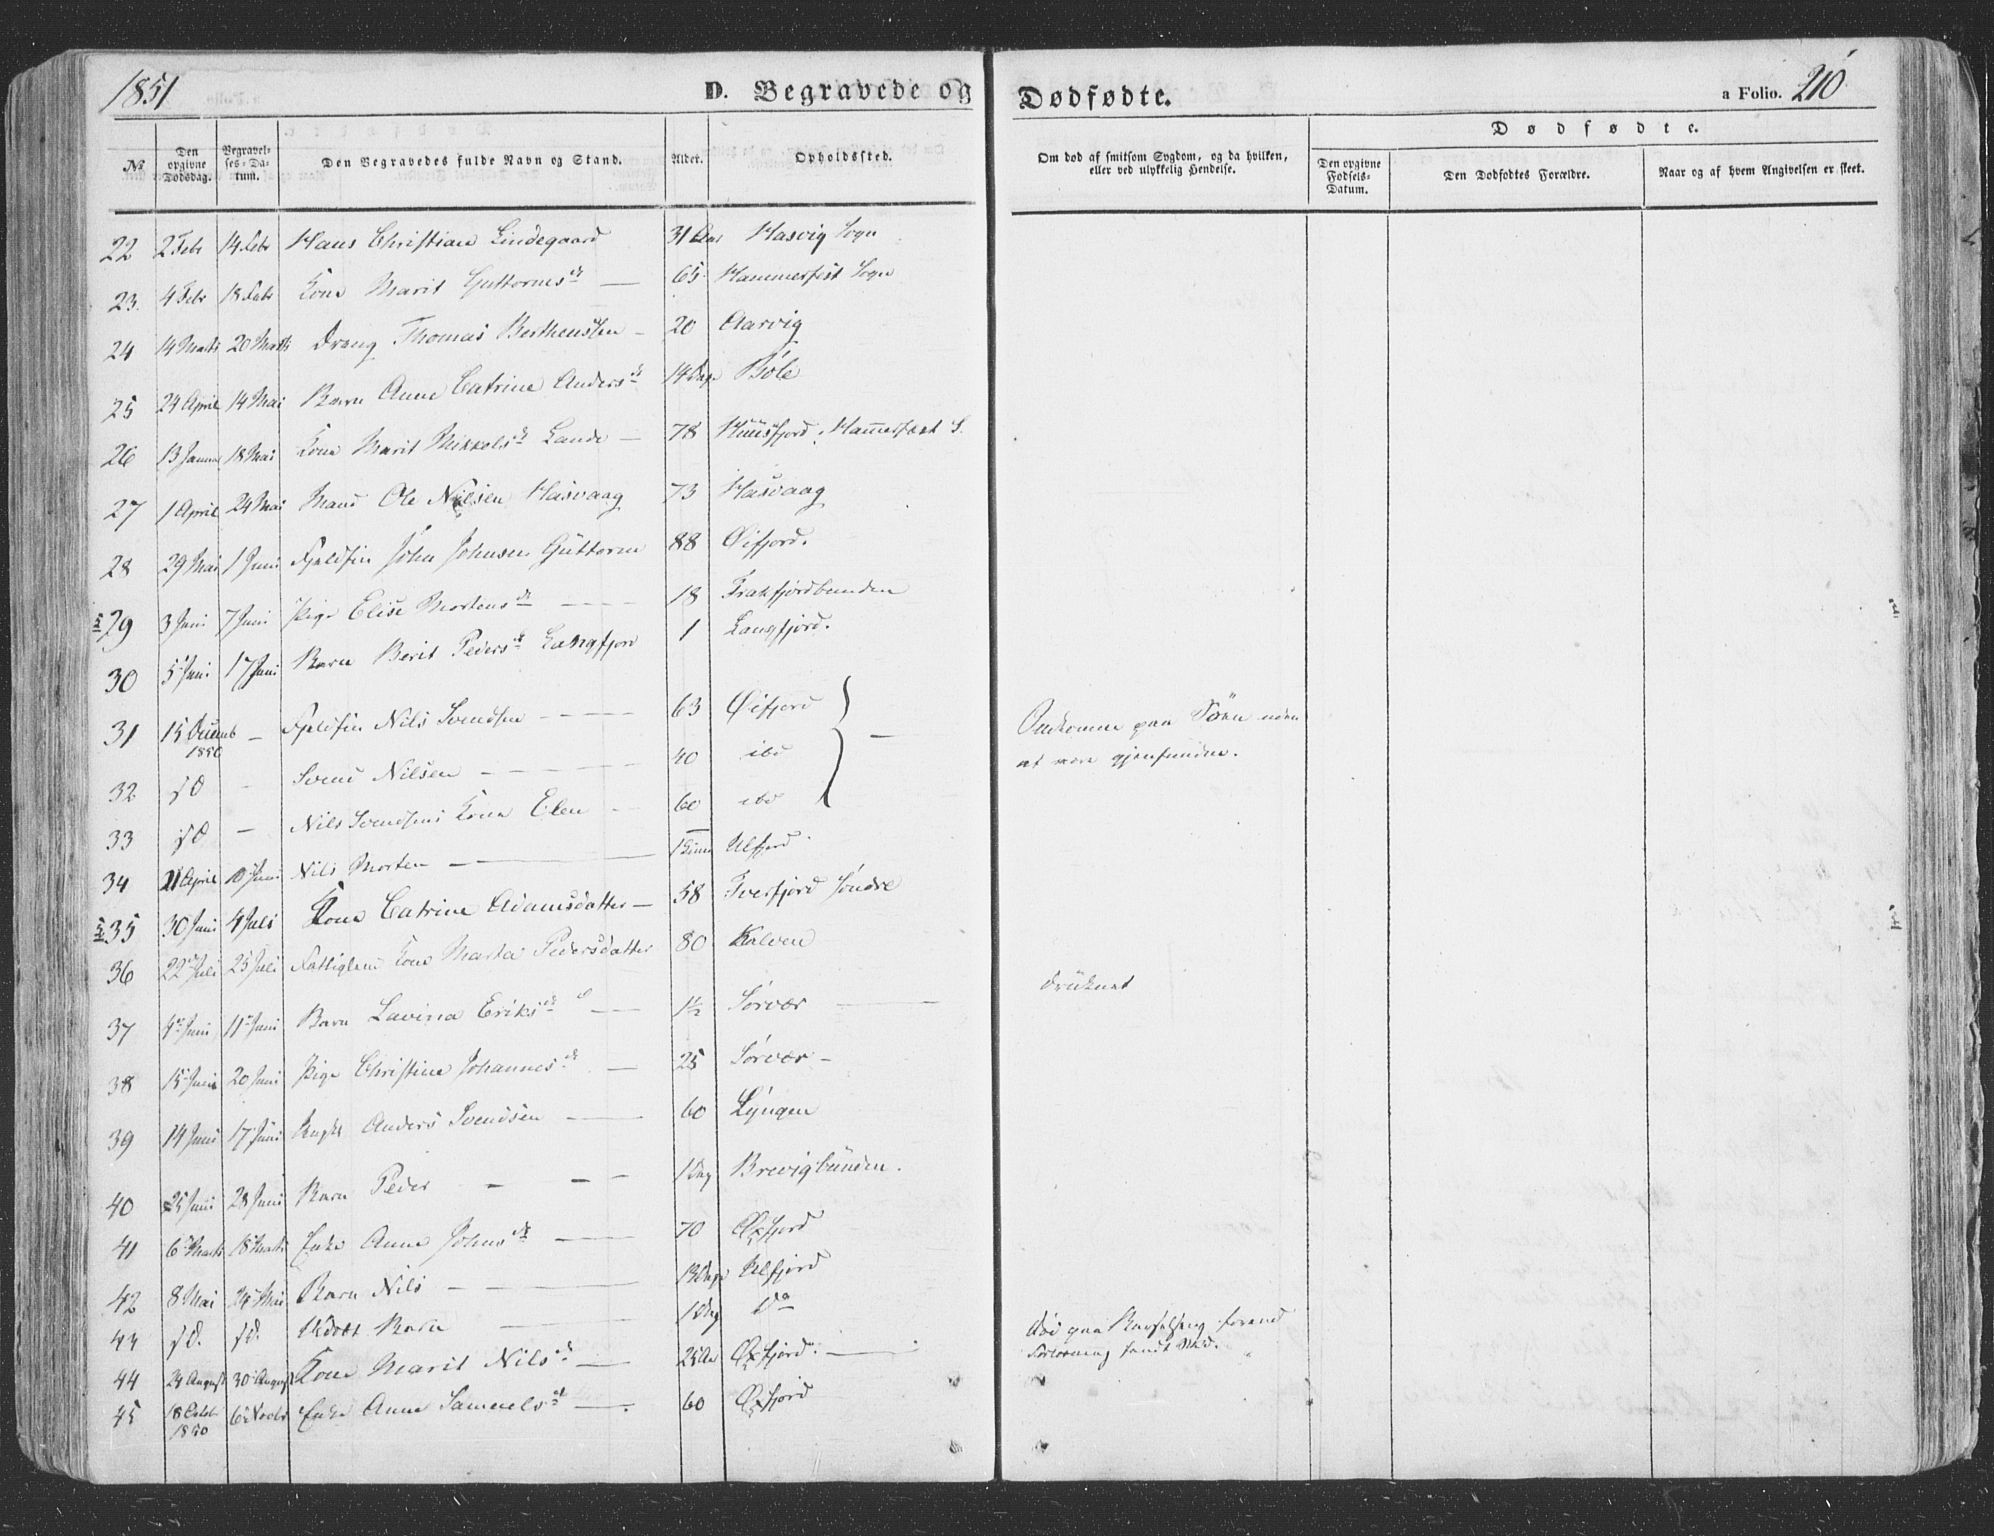 1851
D. Begravede og Dødfødte.
a Folio. 210
No.
Den opgivne Dødsdag.
Begravelses-Datum.
Den Begravedes fulde Navn og Stand.
Alder.
Opholdssted.
Om død af smitsom Sygdom, og da hvilken, eller ved ulykkelig Hendelse.
Dødfødte.
Den opgivne Fødsels-Datum.
Den Dødfødtes Forældre.
Naar og af hvem Angivelsen er skeet.
22 2 Febr 14 Febr Hans Christian Lindegaard 31 Aar Hasvig Sogn
23. 4 Febr 18 Febr Kone Marit Guttormsdr — 65 Hammerfest Sogn
24 14 Marts 20 Marts Dreng Thomas Berthensen — 20 Aarvig
25 24 April 14 Mai Barn Anne Catrine Andersdr 14 Dage Böle
26 13 Januar 18 Mai Kone Marit Mikkelsdr Lande — 78 Huusfjord, Hammerfest S.
27 1 April 24 Mai Mand Ole Nilsen Hasvaag 73 Hasvaag
28 29 Mai 1 Juni Fjeldfin John Johnsen Guttorm 88 Øifjord.
29 3 Juni 7 Juni Pige Elise Mortensdr — 18 Frakfjordbunden
30 5 Juni 17 Juni Barn Berit Pedersdr Langfjord 1 Langfjord.
31 15 Decemb 1850 — Fjeldfin Nils Svendsen — 63 Øifjord Omkomne paa Söen uden
32 sd - Svend Nilsen — 40 ibd at være gjenfundne.
33 sd — Nils Svendsens Kone Elen — 60 ibd
34 21 April 10 Juni Nils Morten — Ulfjord
35 30 Juni 4 Juli Kone Catrine Adamsdatter — 58 Tverfjord Söndre
36 22 Juli 25 Juli Fattiglem Kone Marta Pedersdatter 80 Kalven
37 4 Juni 11 Juni Barn Lavina Eriksdr — 1½ Sørvær — druknet
38 15 Juni 20 Juni Pige Christine Johannesdr — 25 Sørvær —
39 14 Juni 17 Juni Anders Svendsen — 60 Lyngen
40 25 Juni 28 Juni Barn Peder — 1 Dag Brevigbunden.
41 6 Marts 18 Marts Enke Anne Johnsdr — 70 Øxfjord
42 8 Mai 24 Mai Barn Nils — 13 Dage Ulfjord
43 sd. sd. Udøbt Barn — 1 Dag do
44 24 August 30 August Kone Marit Nilsdr — 25 Aar Øxfjord. — död paa Barselseng forend Forløsning fandt Sted.
45 18 Octob 1850 6 Novbr Enke Anne Samuelsdr — 60 Øxfjord